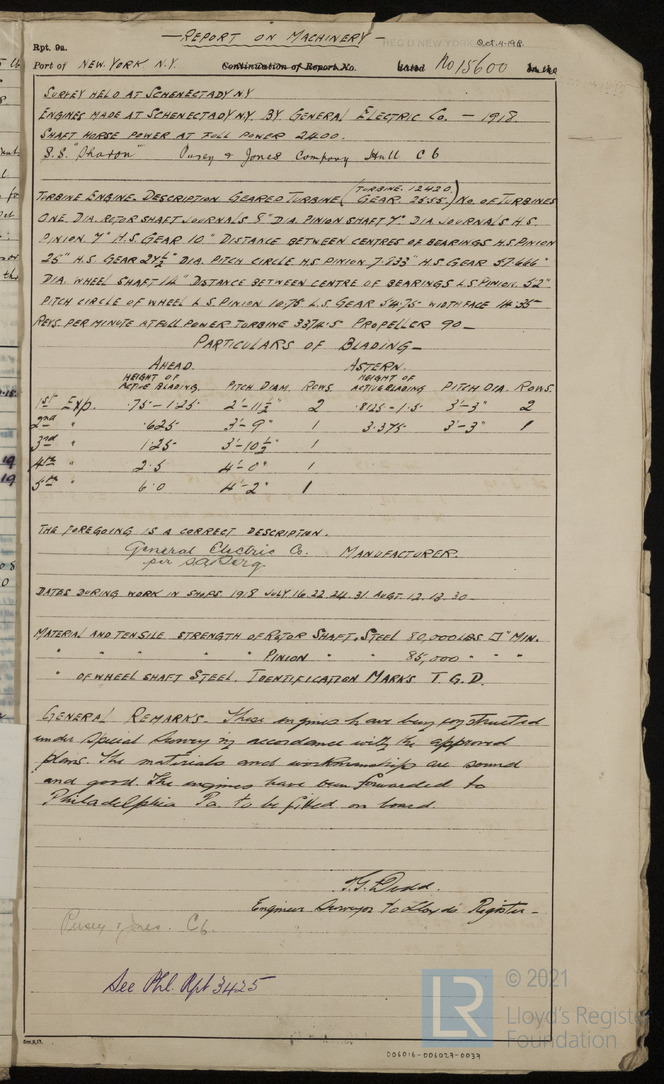 REPORT ON MACHINERY
REC'D NEW YORK Oct. 4. 1918
Rpt. 9a.
Port of NEW YORK N.Y. Continuation of Report No. dated No 15600 on the
SURVEY HELD AT SCHENECTADY NY
ENGINES MADE AT SCHENECTADY NY. BY GENERAL ELECTRIC CO. — 1918.
SHAFT HORSE POWER AT FULL POWER 2400.
S.S. "Pusey & Jones Company Hull C6
TURBINE ENGINE. DESCRIPTION GEARED TURBINE (TURBINE. 12420. GEAR. 2555.) NO. OF TURBINES
ONE. DIA. ROTOR SHAFT JOURNALS 8" DIA. PINION SHAFT 7" DIA JOURNALS H.S.
PINION 7" H.S. GEAR 10" DISTANCE BETWEEN CENTRES OF BEARINGS H.S. PINION
25" H.S. GEAR 24½" DIA. PITCH CIRCLE H.S. PINION 7.833" H.S. GEAR 57.666"
DIA. WHEEL SHAFT 14" DISTANCE BETWEEN CENTRE OF BEARINGS L.S. PINION. 52"
PITCH CIRCLE OF WHEEL L.S. PINION 10.75 L.S. GEAR 54.75 WIDTH FACE 14.35
REVS. PER MINUTE AT FULL POWER TURBINE 3374.5 PROPELLER 90 —
PARTICULARS OF BLADING —
AHEAD. ASTERN.
HEIGHT OF ACTIVE BLADING. PITCH DIAM. ROWS. HEIGHT OF ACTIVE BLADING PITCH DIA. ROWS.
1st Exp. .75 – 1.25 2'-11½" 2 .8125 – 1.5 3'-3" 2
2nd " .625 3'-9" 1 3.375 3'-3" 1
3rd " 1.25 3'-10½" 1
4th " 2.5 4'-0" 1
5th " 6.0 4'-2" 1
THE FOREGOING IS A CORRECT DESCRIPTION.
General Electric Co. MANUFACTURER.
per
DATES DURING WORK IN SHOPS. 1918 JULY. 16. 22. 24. 31. AUGT. 12. 13. 30.
MATERIAL AND TENSILE STRENGTH OF ROTOR SHAFT. STEEL 80,000 LBS □" MIN.
" " " " PINION " " 85,000 " " "
" OF WHEEL SHAFT STEEL. IDENTIFICATION MARKS T.G.D.
GENERAL REMARKS. These engines have been constructed
under Special Survey in accordance with the approved
plans. The materials and workmanship are sound
and good. The engines have been forwarded to
Philadelphia Pa. to be fitted on board.
T.G. Dodd.
Engineer Surveyor to Lloyds Register —
Pusey & Jones. C6.
See Phl. Rpt 3425
© 2021
LR
Lloyd's Registe
Foundation
006016-006027-0037